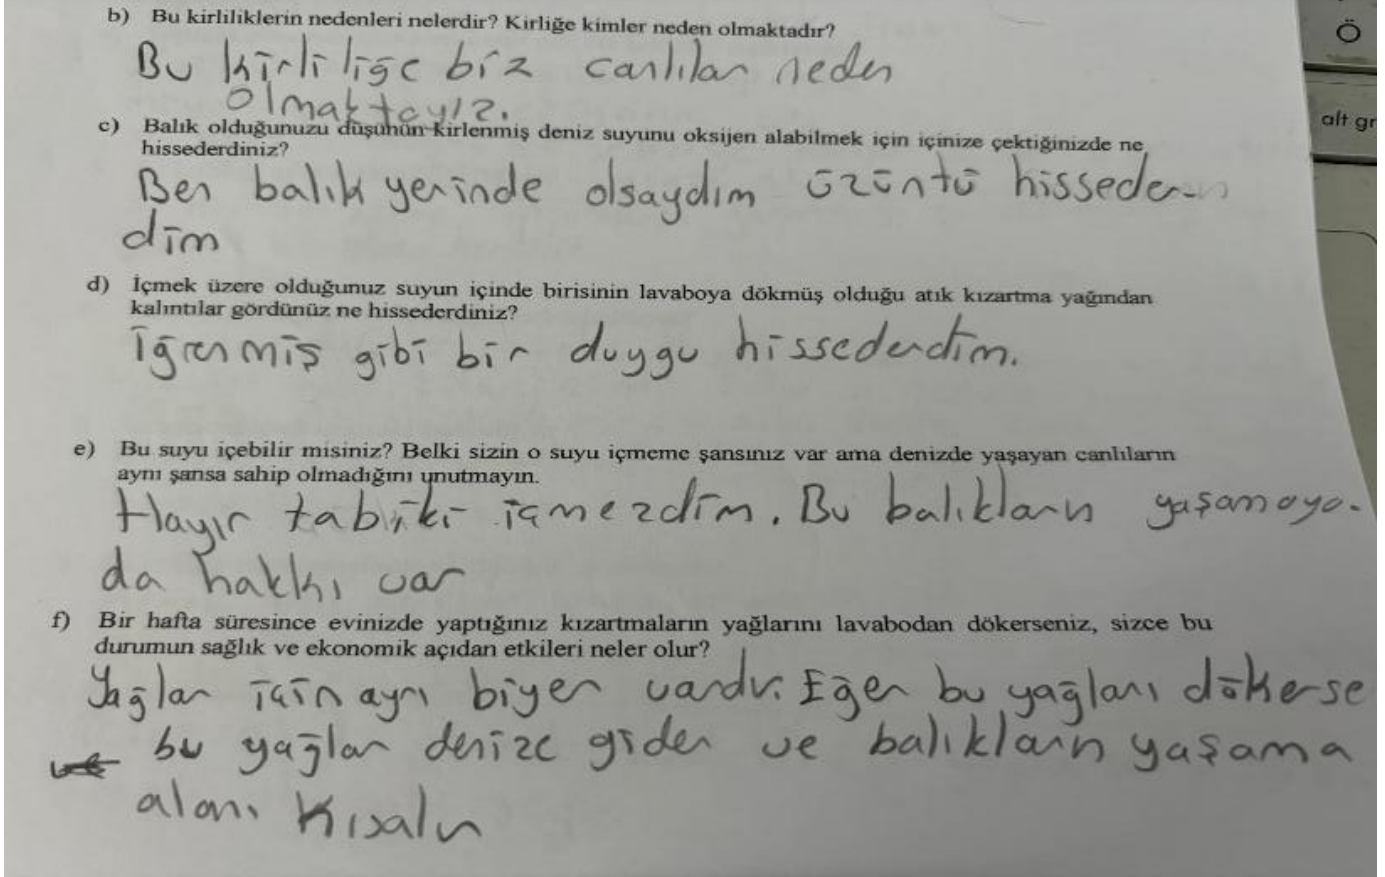 b) Bu kirliliklerin nedenleri nelerdir? Kirliğe kimler neden olmaktadır?
Bu kirliliğe biz canlılar neden
olmaktayız.
c) Balık olduğunuzu düşünün kirlenmiş deniz suyunu oksijen alabilmek için içinize çektiğinizde ne
hissederdiniz?
Ben balık yerinde olsaydım üzüntü hisseder-
dim
d) İçmek üzere olduğunuz suyun içinde birisinin lavaboya dökmüş olduğu atık kızartma yağından
kalıntılar gördünüz ne hissederdiniz?
iğrenmiş gibi bir duygu hissederdim.
e) Bu suyu içebilir misiniz? Belki sizin o suyu içmeme şansınız var ama denizde yaşayan canlıların
aynı şansa sahip olmadığını unutmayın.
Hayır tabiki içmezdim. Bu balıkların yaşamaya
da hakkı var
f) Bir hafta süresince evinizde yaptığınız kızartmaların yağlarını lavabodan dökerseniz, sizce bu
durumun sağlık ve ekonomik açıdan etkileri neler olur?
Yağlar için ayrı biyer vardır. Eğer bu yağları dökerse
bu yağlar denize gider ve balıkların yaşama
alanı kısalır
Ö
alt gr